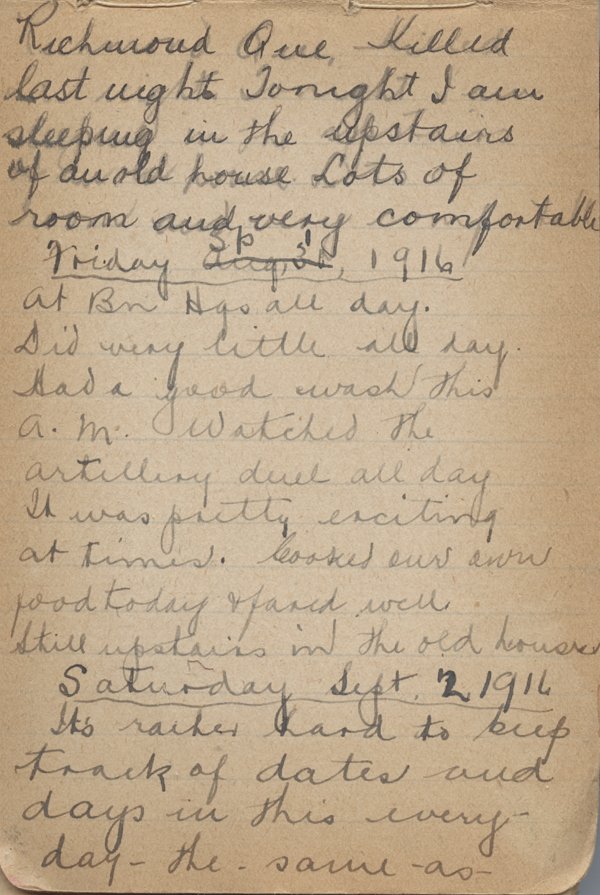 Richmond Que Killed
last night Tonight I am
sleeping in the upstairs
of an old house Lots of
room and very comfortable
Friday Sp 1, 1916
at Bn Hqs all day.
Did very little all day.
Had a good wash this
A. M. Watched the
artillery duel all day
It was pretty exciting
at times. Cooked our own
food today & fared well.
Still upstairs in the old house
Saturday Sept. 2 1916
It's rather hard to keep
track of dates and
days in this every-
day - the - same - as -